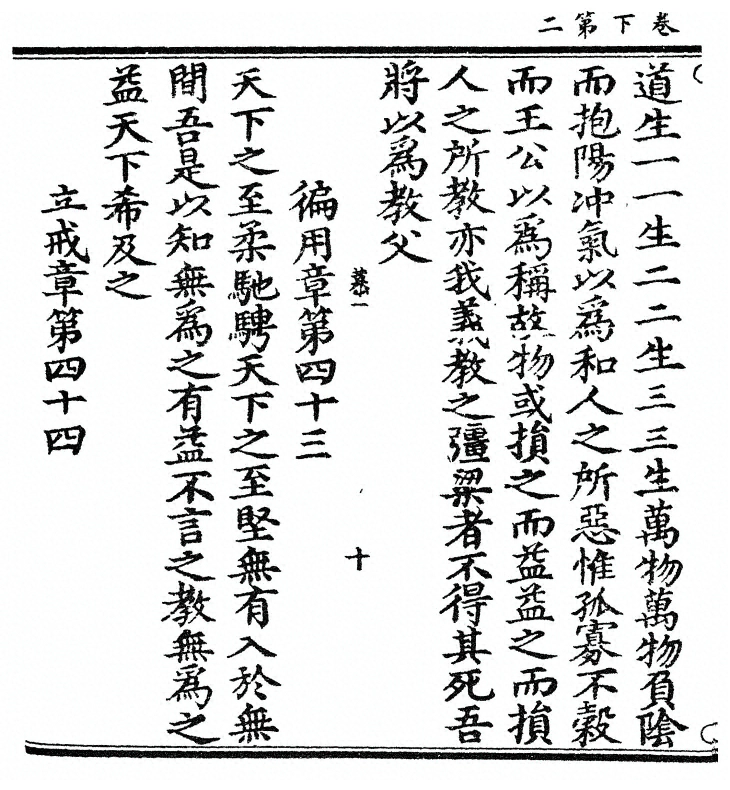 卷下第二
道生一一生二二生三三生萬物萬物負陰
而抱陽冲氣以爲和人之所惡惟孤寡不穀
而王公以爲稱故物或損之而益益之而損
人之所教亦我義教之彊梁者不得其死吾
將以爲教父
慕一
十
徧用章第四十三
天下之至柔馳騁天下之至堅無有入於無
間吾是以知無爲之有益不言之教無爲之
益天下希及之
立戒章第四十四